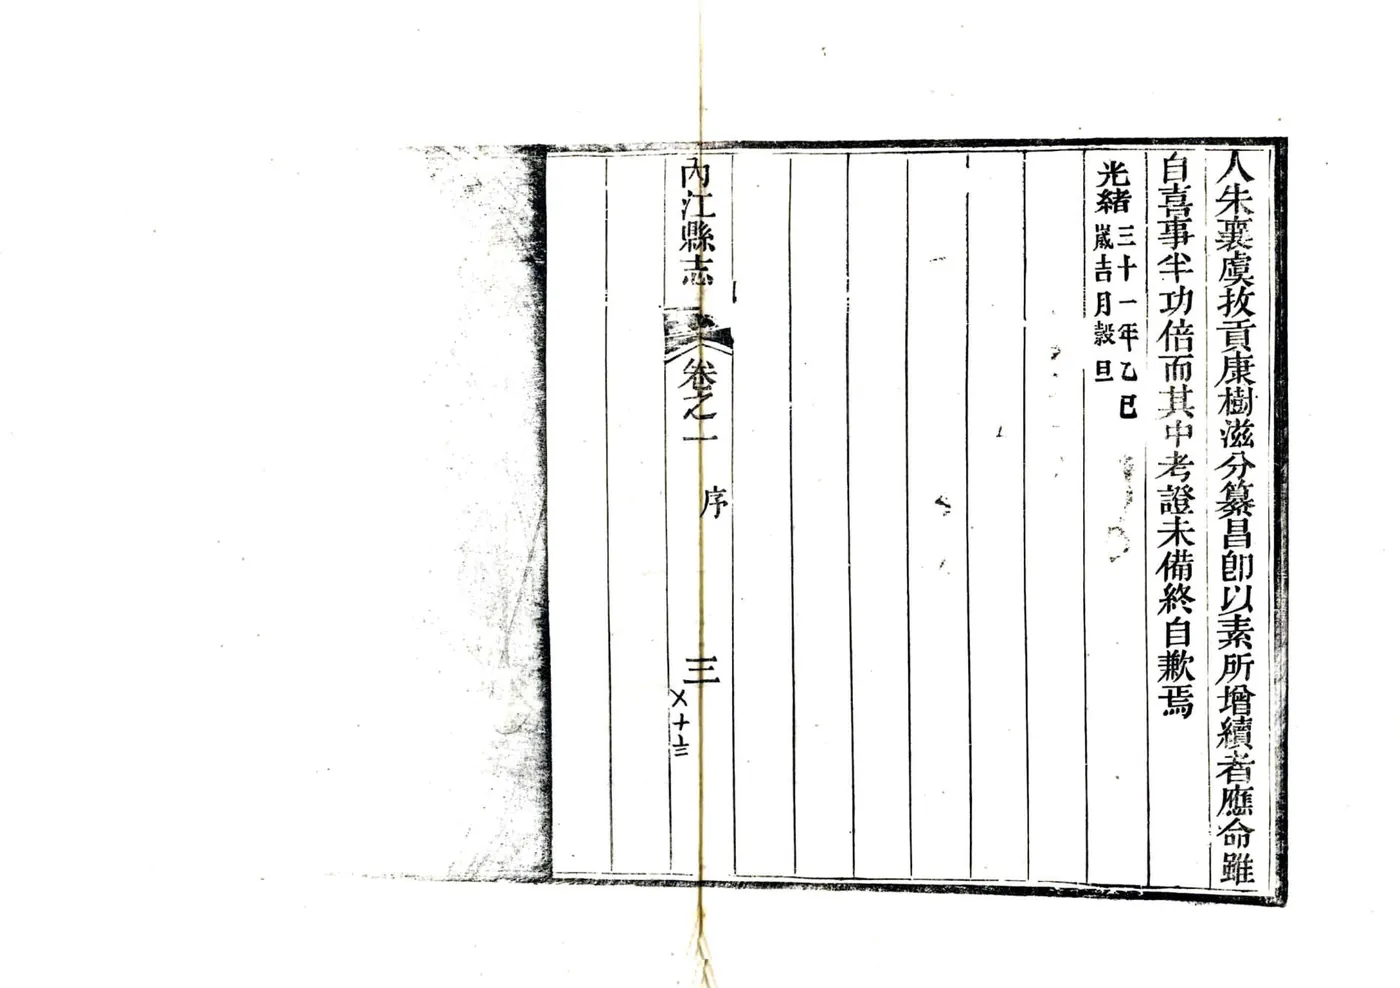 人朱襄虞拔貢康樹滋分纂昌卽以素所增續者應命雖
自喜事半功倍而其中考證未備終自歉焉
光緒三十一年乙巳
歲吉月穀旦
內江縣志
卷之一
序
三